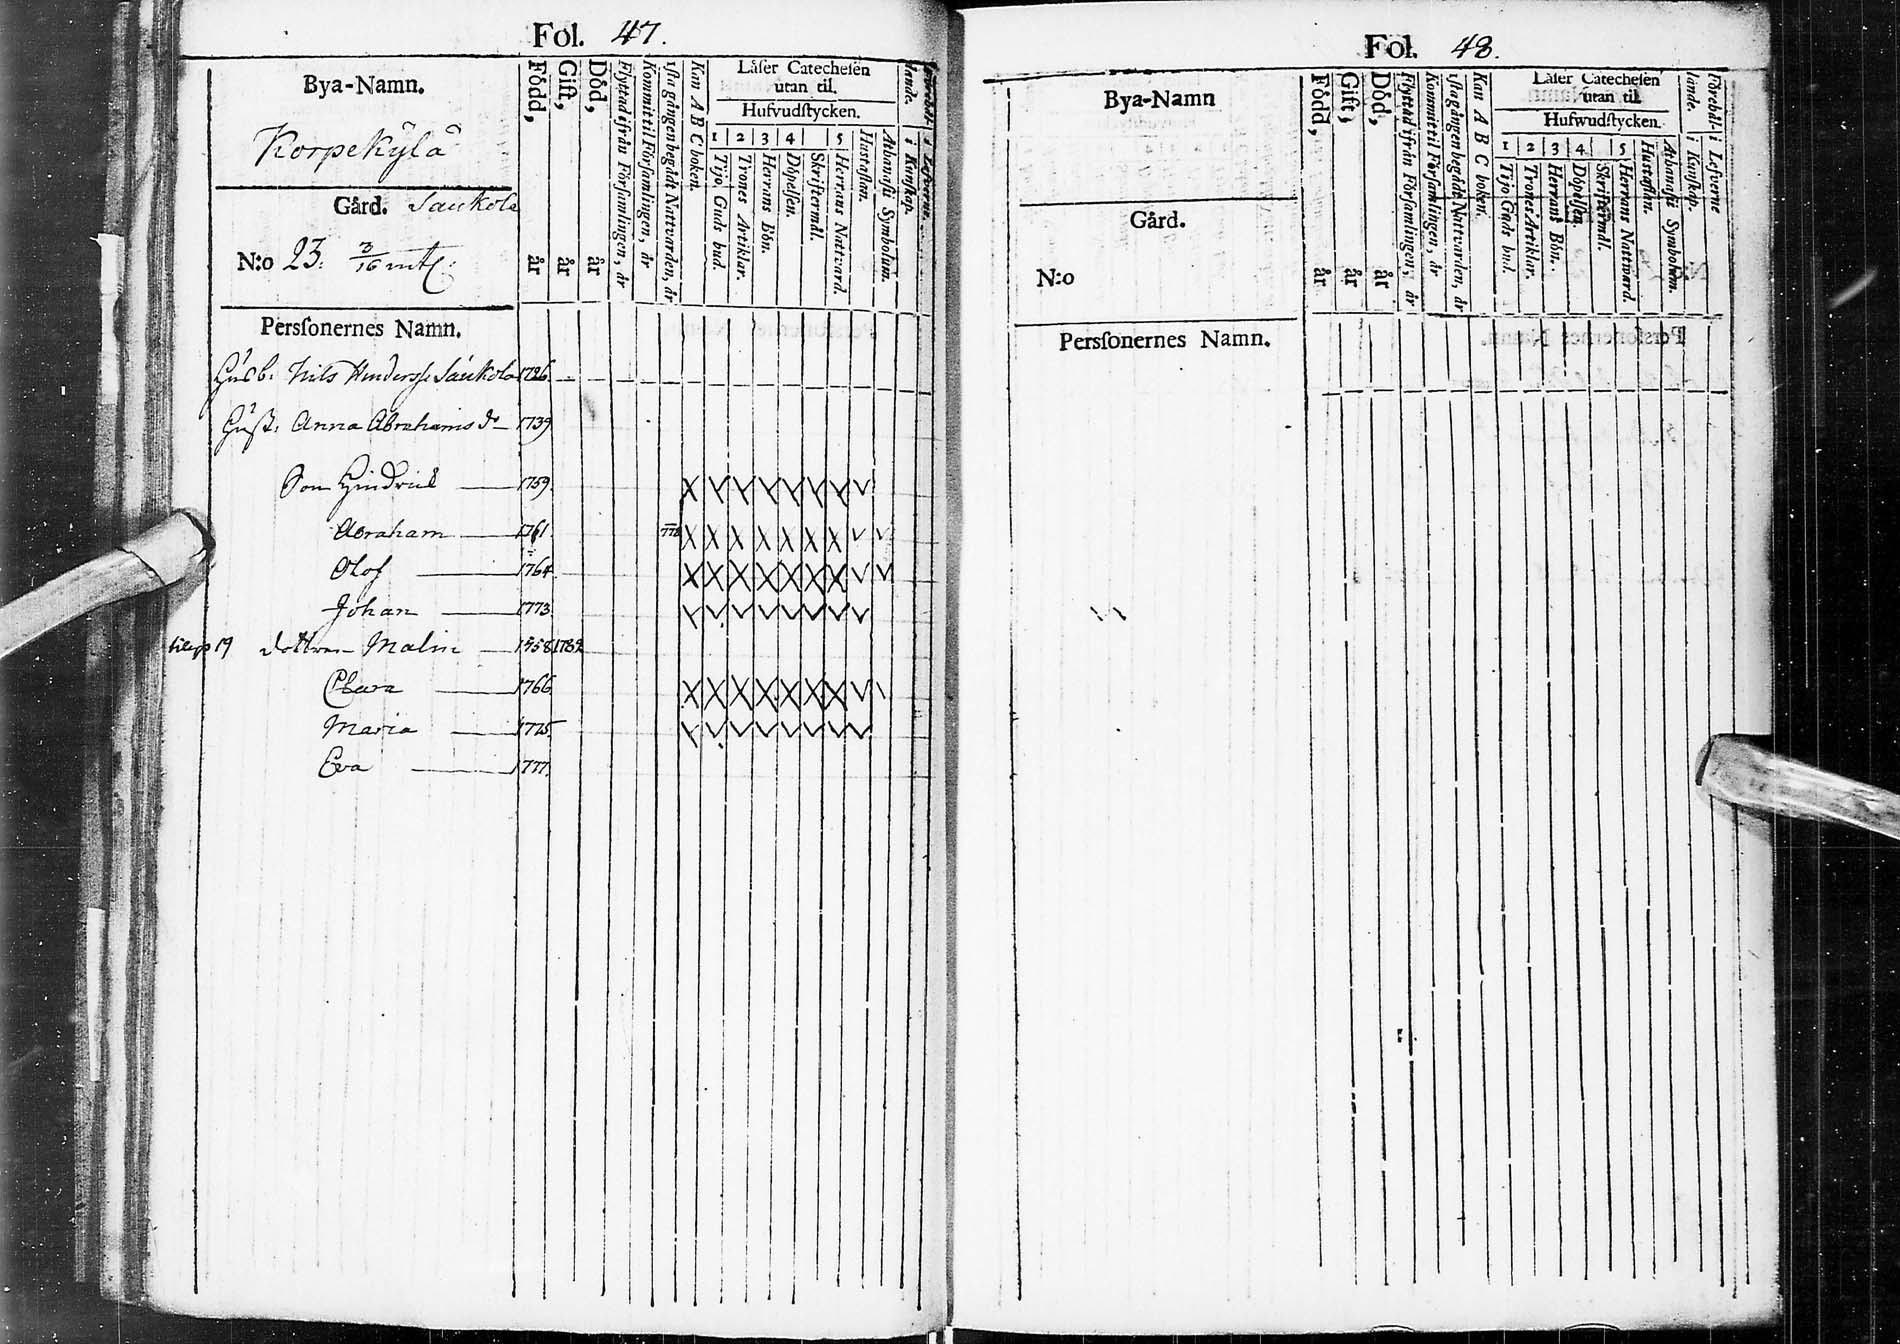 Fol. 47.
Bya-Namn.
Korpekÿlä
Gård. Saukola
N:o 23. 3/16 mtl:
Född, år
Gift, år
Död, år
Flyttad ifrån Församlingen, år
Kommit til Församlingen, år
1sta gången begådt Nattvarden, år
Kan A B C boken.
Läser Catechesen
utan til.
Hufvudstycken.
1 2 3 4 5
Tijo Guds bud.
Trones Artiklar.
Herrans Bön.
Döpelsen.
Skriftermål.
Herrans Nattvard.
Hustaflan.
Athanasii Symbolum.
i Kunskap.
i Lefverne.
Personernes Namn.
Husb. Nils Hindersss. Saukola 1726
Hust. Anna Abrahams dr 1739
Son Hindrick 1759.
Abraham 1761.
Olof 1764
Johan 1773.
19 dottren Malin 1758 1782
Clara 1766
Maria 1775.
Eva 1777.
Fol. 48.
Bya-Namn
Gård.
N:o
Född, år
Gift, år
Död, år
Flyttad ifrån Församlingen, år
Kommit til Församlingen, år
1sta gången begådt Nattvarden, år
Kan A B C boken.
Läser Catechesen
utan til.
Hufwudstycken.
1 2 3 4 5
Tijo Guds bud.
Trones Artiklar.
Herrans Bön.
Döpelsen.
Skriftermål.
Herrans Nattward.
Hustaflan.
Athanasii Symbolum.
Förehållande.
i Kunskap.
i Lefverne
Personernes Namn.